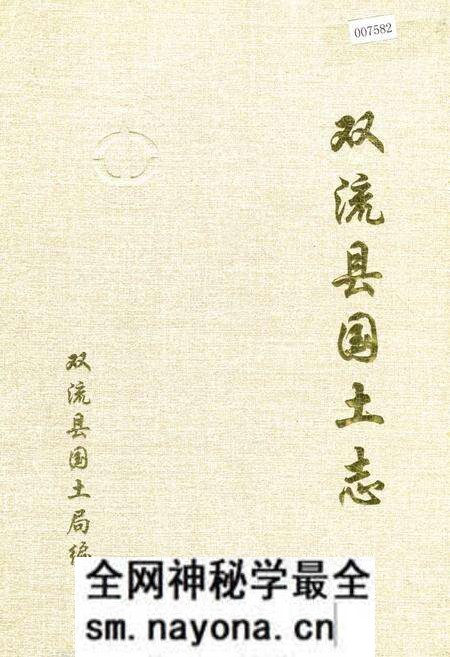 007582
双流县国土志
双流县国土局编
全网神秘学最全
sm.nayona.cn